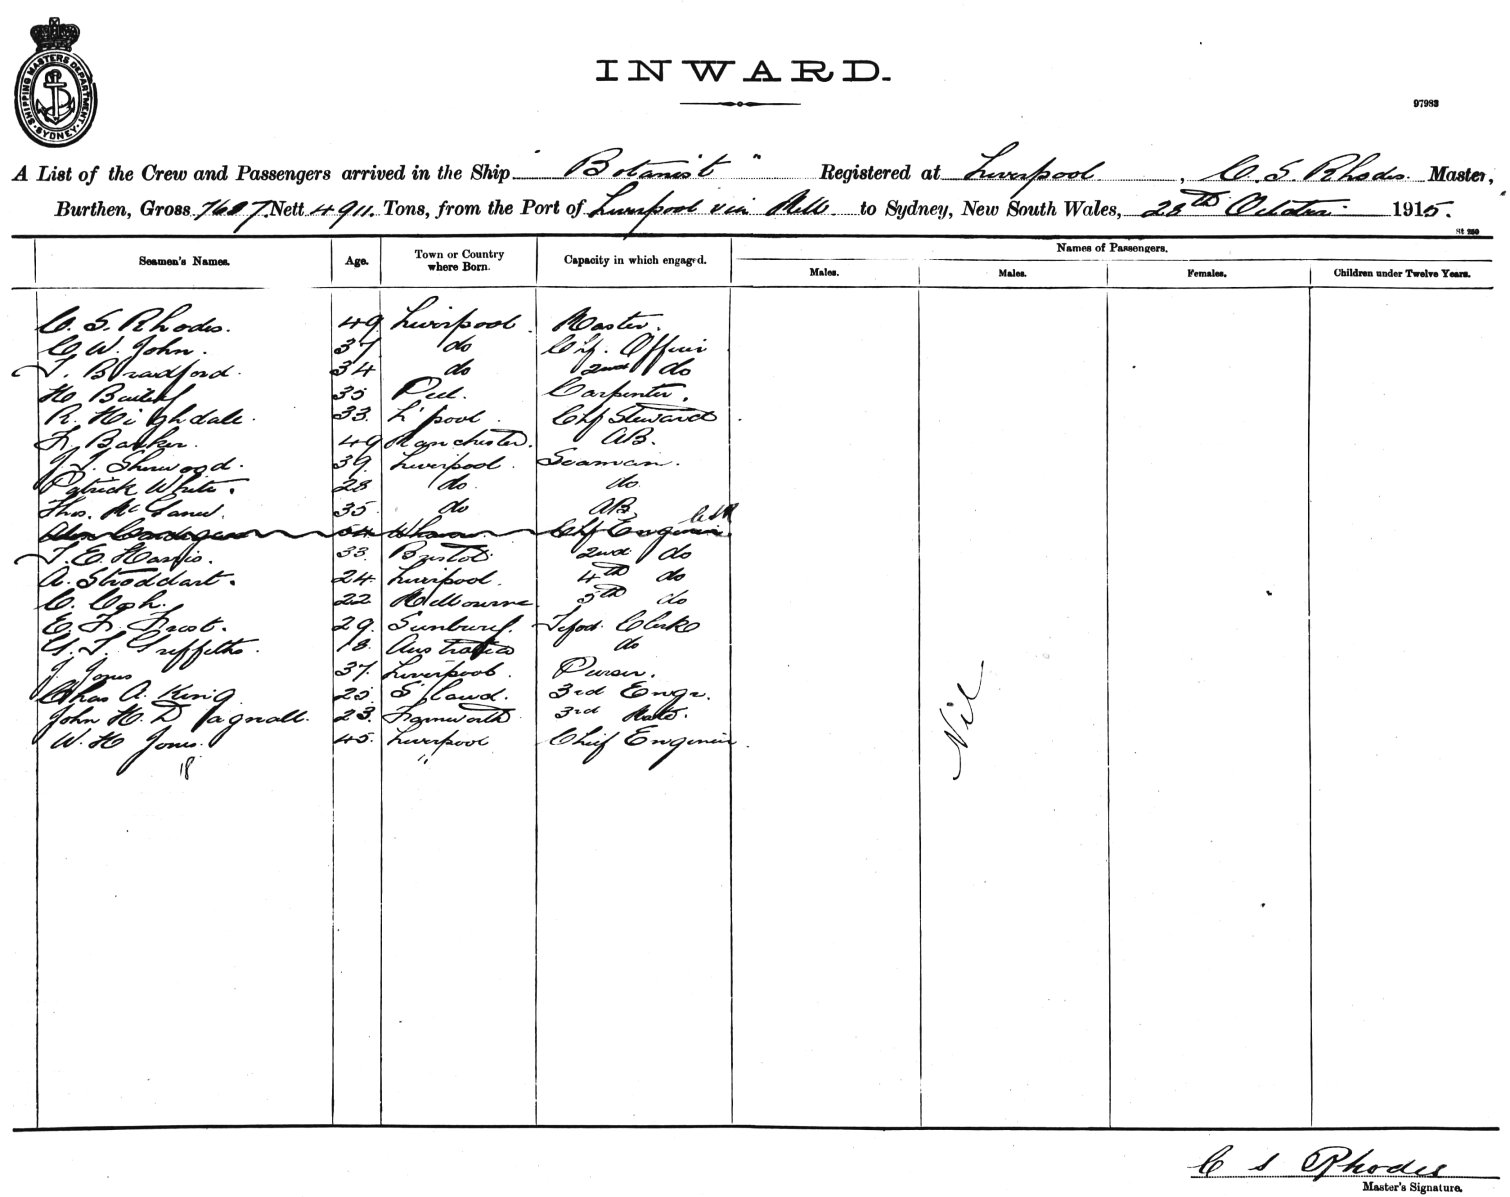 SHIPPING MASTERS DEPARTMENT
SYDNEY
INWARD.
97983
A List of the Crew and Passengers arrived in the Ship " Botanist " Registered at Liverpool , C. S. Rhodes. Master,
Burthen, Gross 7687 Nett 4911. Tons, from the Port of Liverpool via Melb to Sydney, New South Wales, 28th October 1915.
St 280
Seamen's Names. Age. Town or Country where Born. Capacity in which engaged. Names of Passengers.
Males. Males. Females. Children under Twelve Years.
C. S. Rhodes. 49 Liverpool. Master.
C W. John. 37 do Chf. Officer
T. Bradford. 34 do 2nd do
H Bailey 35 Peel. Carpenter.
R. Highdale. 33. L'pool. Chf Steward
F. Barker. 49 Manchester. AB.
J T. Sherwood. 39. Liverpool. Seaman.
Patrick White. 28 do. do.
Thos. Mc 35 do AB.
54 Chf Engineer CSR
T. E. Harris. 33. Bristol. 2nd do
A. Stoddart. 24. Liverpool. 4th do
C. 22 Melbourne. 5th do
E. F. Frost. 29. Sunbury. Clerk
G. T. Griffiths. 18. Australia do
J Jones 37. Liverpool. Purser.
Chas A. King 25. S'land. 3rd Engr.
John H. D 23. Farnworth 3rd Mate.
W. H Jones. 45. Liverpool Chief Engineer.
18
Nil
C S Rhodes
Master's Signature.